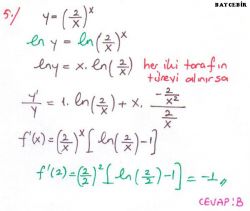 BAYCEBİR
5./ y = (2/x)^x
ln y = ln (2/x)^x
ln y = x . ln (2/x) her iki tarafın türevi alınırsa
y'/y = 1 . ln (2/x) + x . (-2/x²)/(2/x)
f'(x) = (2/x)^x [ ln (2/x) - 1 ] //
f'(2) = (2/2)² [ ln (2/2) - 1 ] = -1 //
CEVAP: B